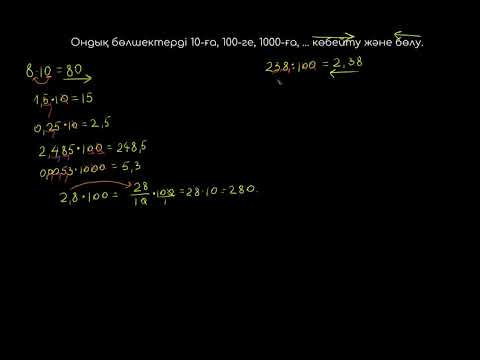 Ондық бөлшектерді 10-ға, 100-ге, 1000-ға, ... көбейту және бөлу.
8·10=80
1,5·10=15
0,25·10=2,5
2,485·100=248,5
0,0053·1000=5,3
2,8·100= 28/10·100/1=28·10=280.
238:100=2,38